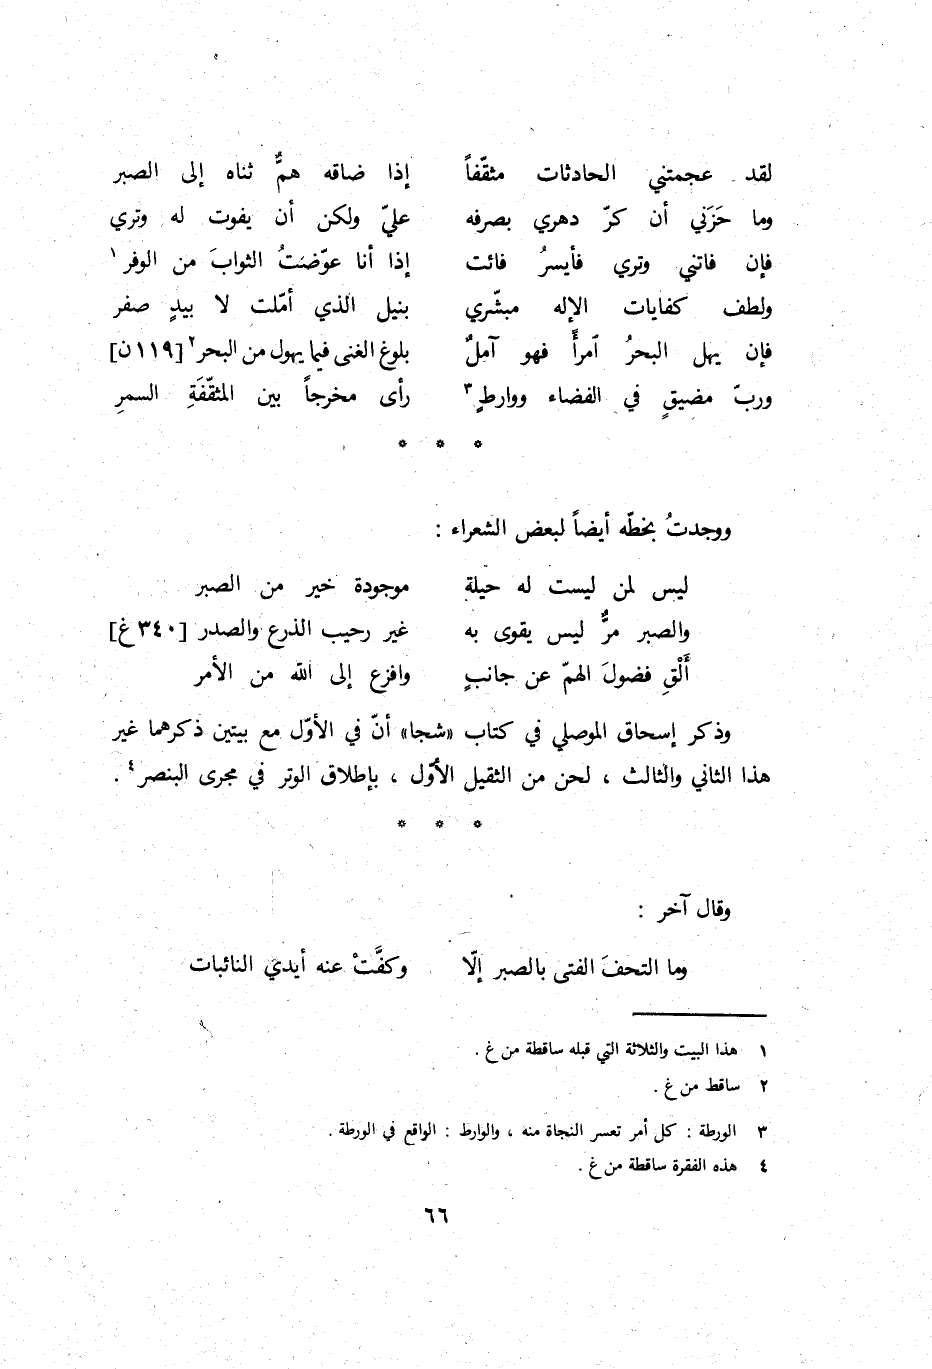 لقد عجمتني الحادثات مثقّفاً إذا ضاقه همٌّ ثناه إلى الصبر
وما حَزَني أن كرّ دهري بصرفه عليّ ولكن أن يفوت له وتري
فإن فاتني وتري فأيسرُ فائت إذا أنا عوّضتُ الثوابَ من الوفر ١
ولطف كفايات الإله مبشّري بنيل الذي أمّلت لا بيدٍ صفر
فإن يهل البحرُ ٱمرأً فهو آملٌ بلوغ الغنى فيما يهول من البحر ٢ [١١٩ ن]
وربّ مضيقٍ في الفضاء ووارطٍ ٣ رأى مخرجاً بين المثقّفَةِ السمرِ
* * *
ووجدتُ بخطّه أيضاً لبعض الشعراء :
ليس لمن ليست له حيلة موجودة خير من الصبر
والصبر مرٌّ ليس يقوى به غير رحيب الذرع والصدر [٣٤٠ غ]
أَلْقِ فضولَ الهمّ عن جانبٍ وافزع إلى الله من الأمر
وذكر إسحاق الموصلي في كتاب «شجا» أنّ في الأوّل مع بيتين ذكرهما غير
هذا الثاني والثالث ، لحن من الثقيل الأوّل ، بإطلاق الوتر في مجرى البنصر ٤ .
* * *
وقال آخر :
وما التحفَ الفتى بالصبر إلّا وكفَّتْ عنه أيدي النائبات
١ هذا البيت والثلاثة التي قبله ساقطة من غ .
٢ ساقط من غ .
٣ الورطة : كل أمر تعسر النجاة منه ، والوارط : الواقع في الورطة .
٤ هذه الفقرة ساقطة من غ .
٦٦